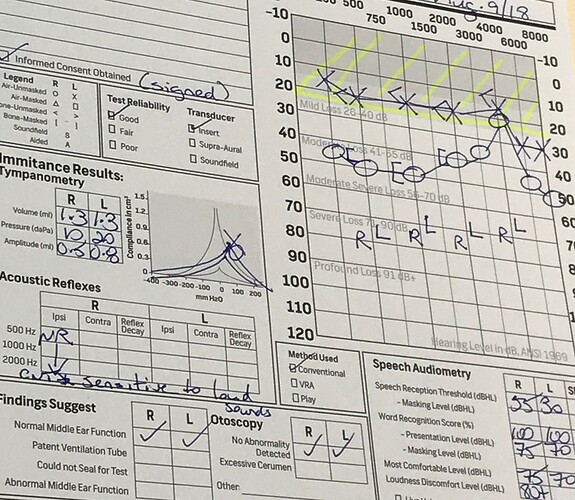 Aug. 9/18
500 1000 2000 4000 8000
750 1500 3000 6000
-10 -10
0 0
10 10
20 20
30 Mild Loss 26-40 dB 30
40 Moderate Loss 41-55 dB 40
50 50
60 Moderate Severe Loss 56-70 dB
70 Severe Loss 71-90 dB
80 R L R L R L R L
90
100 Profound Loss 91 dB+
110
120
Hearing Level in dB, ANSI 1969
Informed Consent Obtained (signed)
Legend R L
Air-Unmasked O X
Air-Masked △ □
Bone-Unmasked < >
Bone-Masked [ ]
Soundfield S
Aided A
Test Reliability
Good
Fair
Poor
Transducer
Insert
Supra-Aural
Soundfield
Immitance Results:
Tympanometry
R L
Volume (ml) 1.3 1.3
Pressure (daPa) 10 20
Amplitude (ml) 0.5 0.8
Compliance in cm³
1.5
1.2
0.9
0.6
0.3
0
-400 -300 -200 -100 0 100 200
mm H2O
Acoustic Reflexes
R L
Ipsi Contra Reflex Decay Ipsi Contra Reflex Decay
500 Hz NR
1000 Hz
2000 Hz
sensitive to loud
sounds
Method Used
Conventional
VRA
Play
Speech Audiometry
R L
Speech Reception Threshold (dBHL) 55 30
- Masking Level (dBHL)
Word Recognition Score (%) 100 100
- Presentation Level (dBHL) 75 70
- Masking Level (dBHL)
Most Comfortable Level (dBHL) 75 70
Loudness Discomfort Level (dBHL) 80+
Findings Suggest R L
Normal Middle Ear Function ✓ ✓
Patent Ventilation Tube
Could not Seal for Test
Abnormal Middle Ear Function
Otoscopy R L
No Abnormality Detected ✓ ✓
Excessive Cerumen
Other: